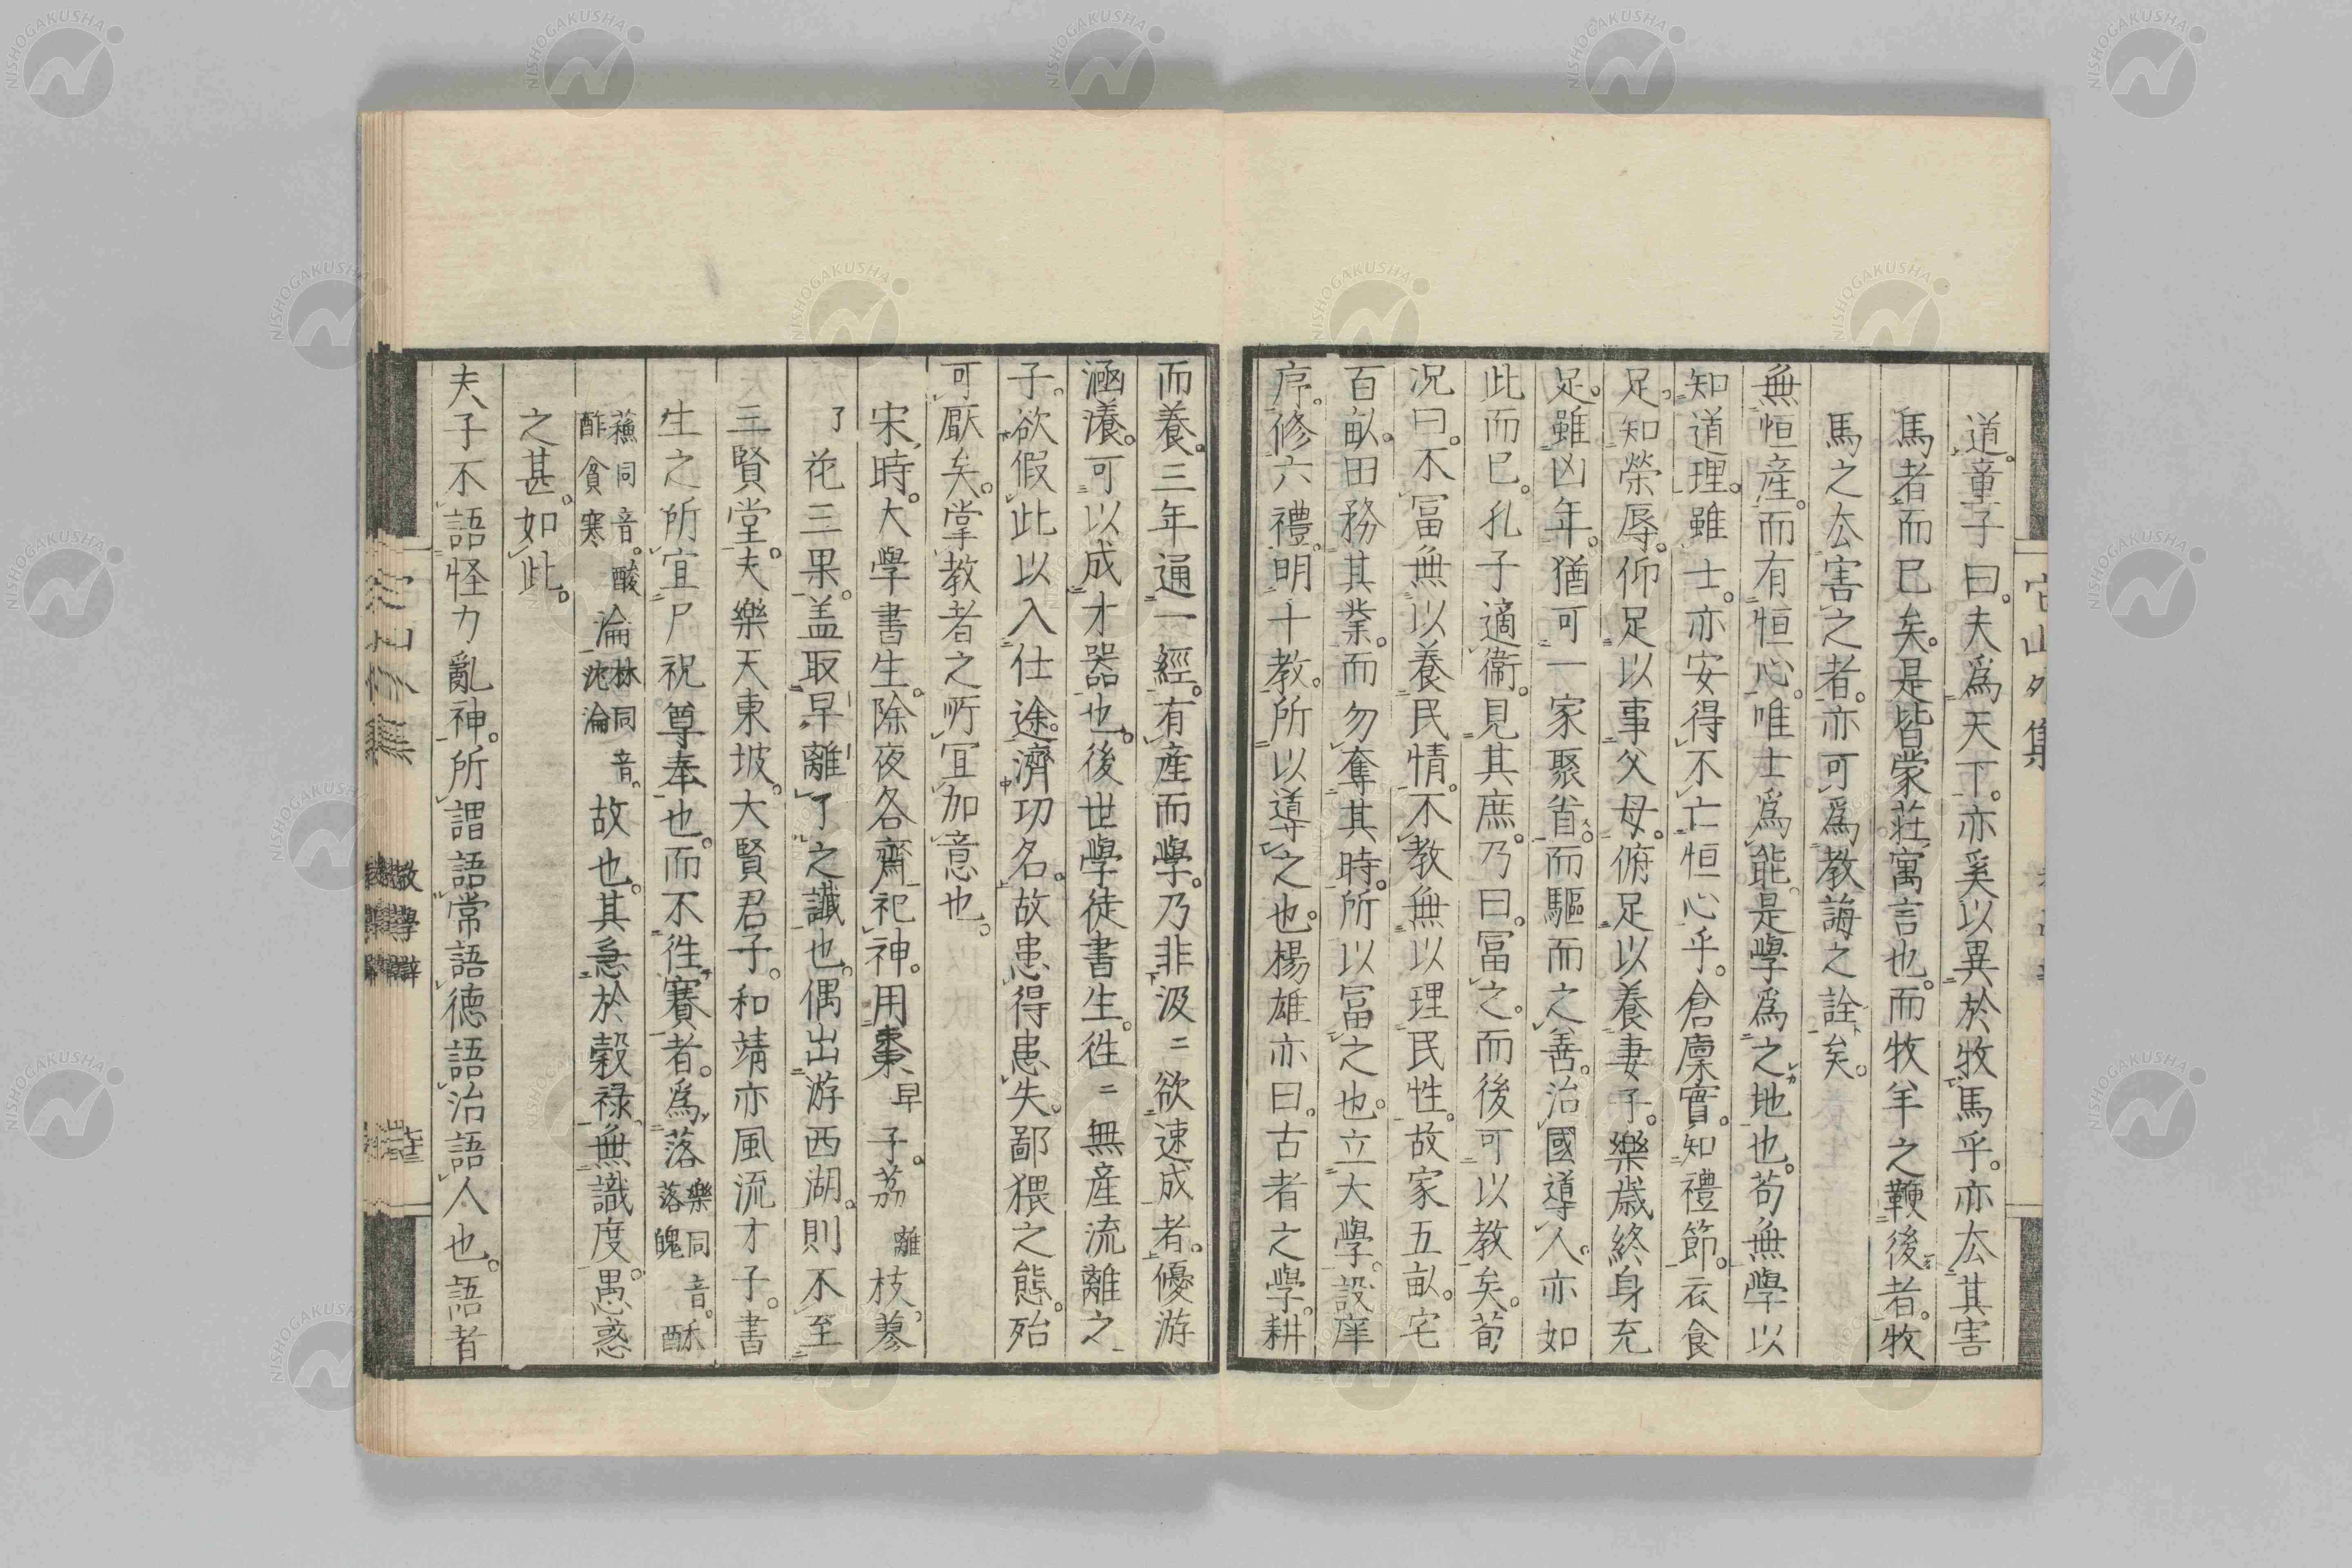 道。童子曰。夫爲天下。亦奚以異於牧馬乎。亦厺其害
馬者而已矣。是皆蒙莊寓言也。而牧羊之鞭後者。牧
馬之厺害之者。亦可爲教誨之詮矣。
無恒産。而有恒心。唯士爲能。是學爲之地也。苟無學以
知道理。雖士。亦安得不亡恒心乎。倉廩實。知禮節。衣食
足。知榮辱。仰足以事父母。俯足以養妻子。樂歳終身充
足。雖凶年。猶可一家聚首。而驅而之善。治國導人。亦如
此而已。孔子適衞。見其庶。乃曰。冨之。而後可以教矣。荀
况曰。不冨無以養民情。不教無以理民性。故家五畝。宅
百畝。田務其業。而勿奪其時。所以冨之也。立大學。設庠
序。修六禮。明十教。所以導之也。楊雄亦曰。古者之學。耕
而養。三年通一經。有産而學。乃非汲〻欲速成者。優游
涵瀁。可以成才器也。後世學徒書生。徃〻無産流離之
子。欲假此以入仕途。濟功名。故患得患失。鄙猥之態。殆
可厭矣。掌教者之所宜加意也。
宋時。大學書生。除夜各齋祀神。用棗早子。荔離枝。蓼
了花三果。盖取早離了之讖也。偶出游西湖。則不至
三賢堂。夫樂天東坡。大賢君子。和靖亦風流才子。書
生之所宜尸祝尊奉也。而不徃賽者。爲落樂同音。落魄酥
蘓同音。酸酢貪寒淪林同音。沈淪故也。其急於穀祿。無識度。愚惑
之甚。如此。
夫子不語怪力亂神。所謂語常語德語治語人也。語者
它山外集
教學